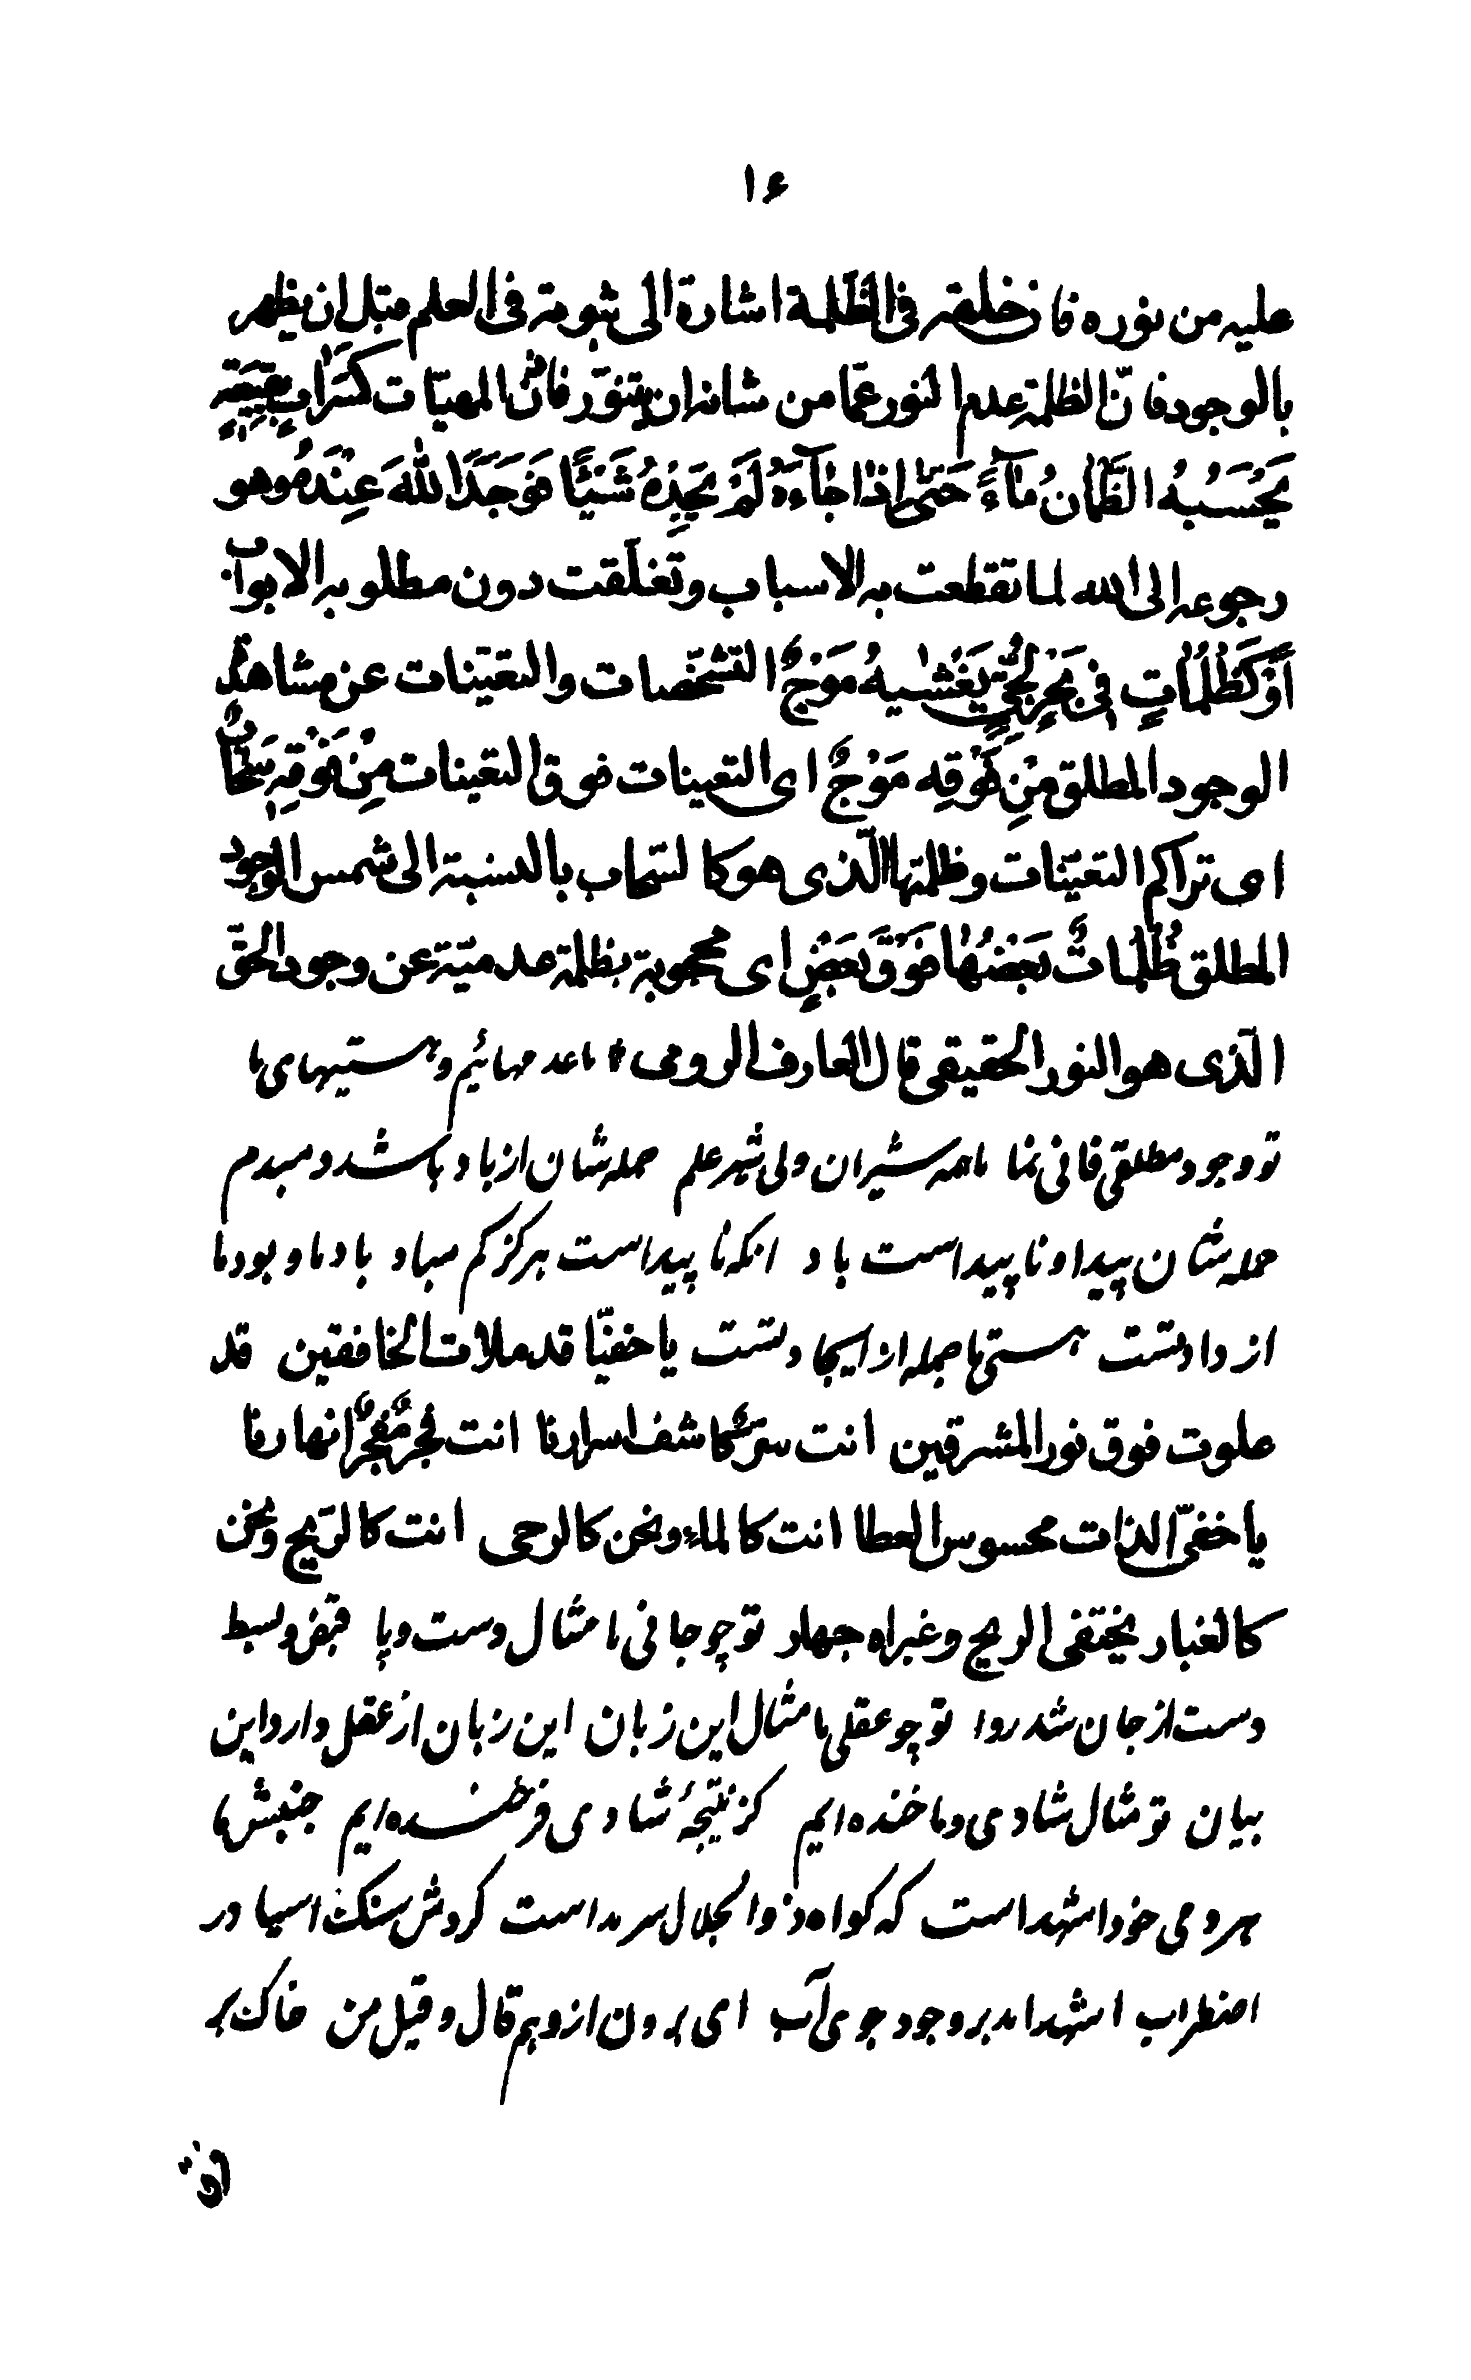 ۱۶
عليه من نوره فان خلقه فى الظّلمة اشارة الى ثبوته فى العلم قبل ان يظهر
بالوجود فانّ الظلمة عدم النور عمّا من شانه ان يتنوّر فانّ المهيّات كَسَرَابٍ بِقِيعَةٍ
يَحْسَبُهُ الظَّمْاٰنُ مٰآءً حَتّٰى اِذٰا جٰآءَهُ لَمْ يَجِدْهُ شَيْئًا فَوَجَدَ اللّٰهَ عِنْدَهُ وهو
رجوعه الى الله لما تقطعت به الاسباب وتغلّقت دون مطلوبه الابواب
اَوْ كَظُلُمٰاتٍ فِى بَحْرٍ لُجِّىٍّ يَغْشٰيهُ مَوْجٌ التشخّصات والتعيّنات عن مشاهدة
الوجود المطلق مِنْ فَوْقِه مَوْجٌ اى التعينات فوق التعينات مِنْ فَوْقِهِ سَحٰابٌ
اى تراكم التعيّنات وظلمتها الّذى هو كالسّحاب بالنسبة الى شمس الوجود
المطلق ظُلُمٰاتٌ بَعْضُهٰا فَوْقَ بَعْضٍ اى محجوبة بظلمة عدميّة عن وجود الحقّ
الّذى هو النور الحقيقى قال العارف الرومى * ما عدمهائيم وهستيهاى ما
تو وجود مطلقى فانى نما ما همه شيران ولى شير علم حمله شان از باد باشد دمبدم
حمله شان پيدا و ناپيداست باد انكه ناپيداست هركز كم مباد باد ما و بود ما
از داد تست هستى ما جمله از ايجاد تست يا خفيّا قد ملات الخافقين قد
علوت فوق نور المشرقين انت سرّ كاشف اسرارنا انت فجر مفجر انهارنا
يا خفىّ الذات محسوس العطا انت كالماء ونحن كالرحى انت كالرّيح ونحن
كالغبار يختفى الريح وغبراه جهار تو چو جانى ما مثال دست و پا قبض و بسط
دست از جان شد روا تو چو عقلى ما مثال اين زبان اين زبان از عقل دارد اين
بيان تو مثال شادى و ما خنده ايم كز نتيجهٔ شادى فرخنده ايم جنبش ما
هر دمى خود اشهد است كه كواه ذوالجلال سرمد است كردش سنك اسيا در
اضطراب اشهد امد بر وجود جوى آب اى برون از وهم قال و قيل من خاك بر